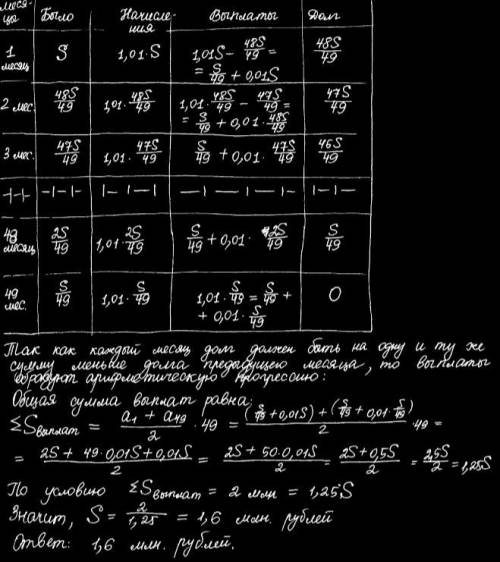 меся- Было Начисле- Выплаты Долг
ца ния
1 месяц S 1,01·S 1,01S - 48S/49 = 48S/49
= S/49 + 0,01S
2 мес. 48S/49 1,01·48S/49 1,01·48S/49 - 47S/49 = 47S/49
= S/49 + 0,01·48S/49
3 мес. 47S/49 1,01·47S/49 S/49 + 0,01·47S/49 46S/49
-|-|- -|-|- |-|-| -|-|-|- |-|-|
48 месяц 2S/49 1,01·2S/49 S/49 + 0,01·2S/49 S/49
49 мес. S/49 1,01·S/49 1,01·S/49 = S/49 + 0
+ 0,01·S/49
Так как каждый месяц долг должен быть на одну и ту же
сумму меньше долга предыдущего месяца, то выплаты
образуют арифметическую прогрессию:
Общая сумма выплат равна:
ΣSвыплат = (a1 + a49)/2 · 49 = ((S/49 + 0,01S) + (S/49 + 0,01·S/49))/2 · 49 =
= (2S + 49·0,01S + 0,01S)/2 = (2S + 50·0,01S)/2 = (2S + 0,5S)/2 = 2,5S/2 = 1,25S
По условию ΣSвыплат = 2 млн = 1,25S
Значит, S = 2/1,25 = 1,6 млн. рублей
Ответ: 1,6 млн. рублей.